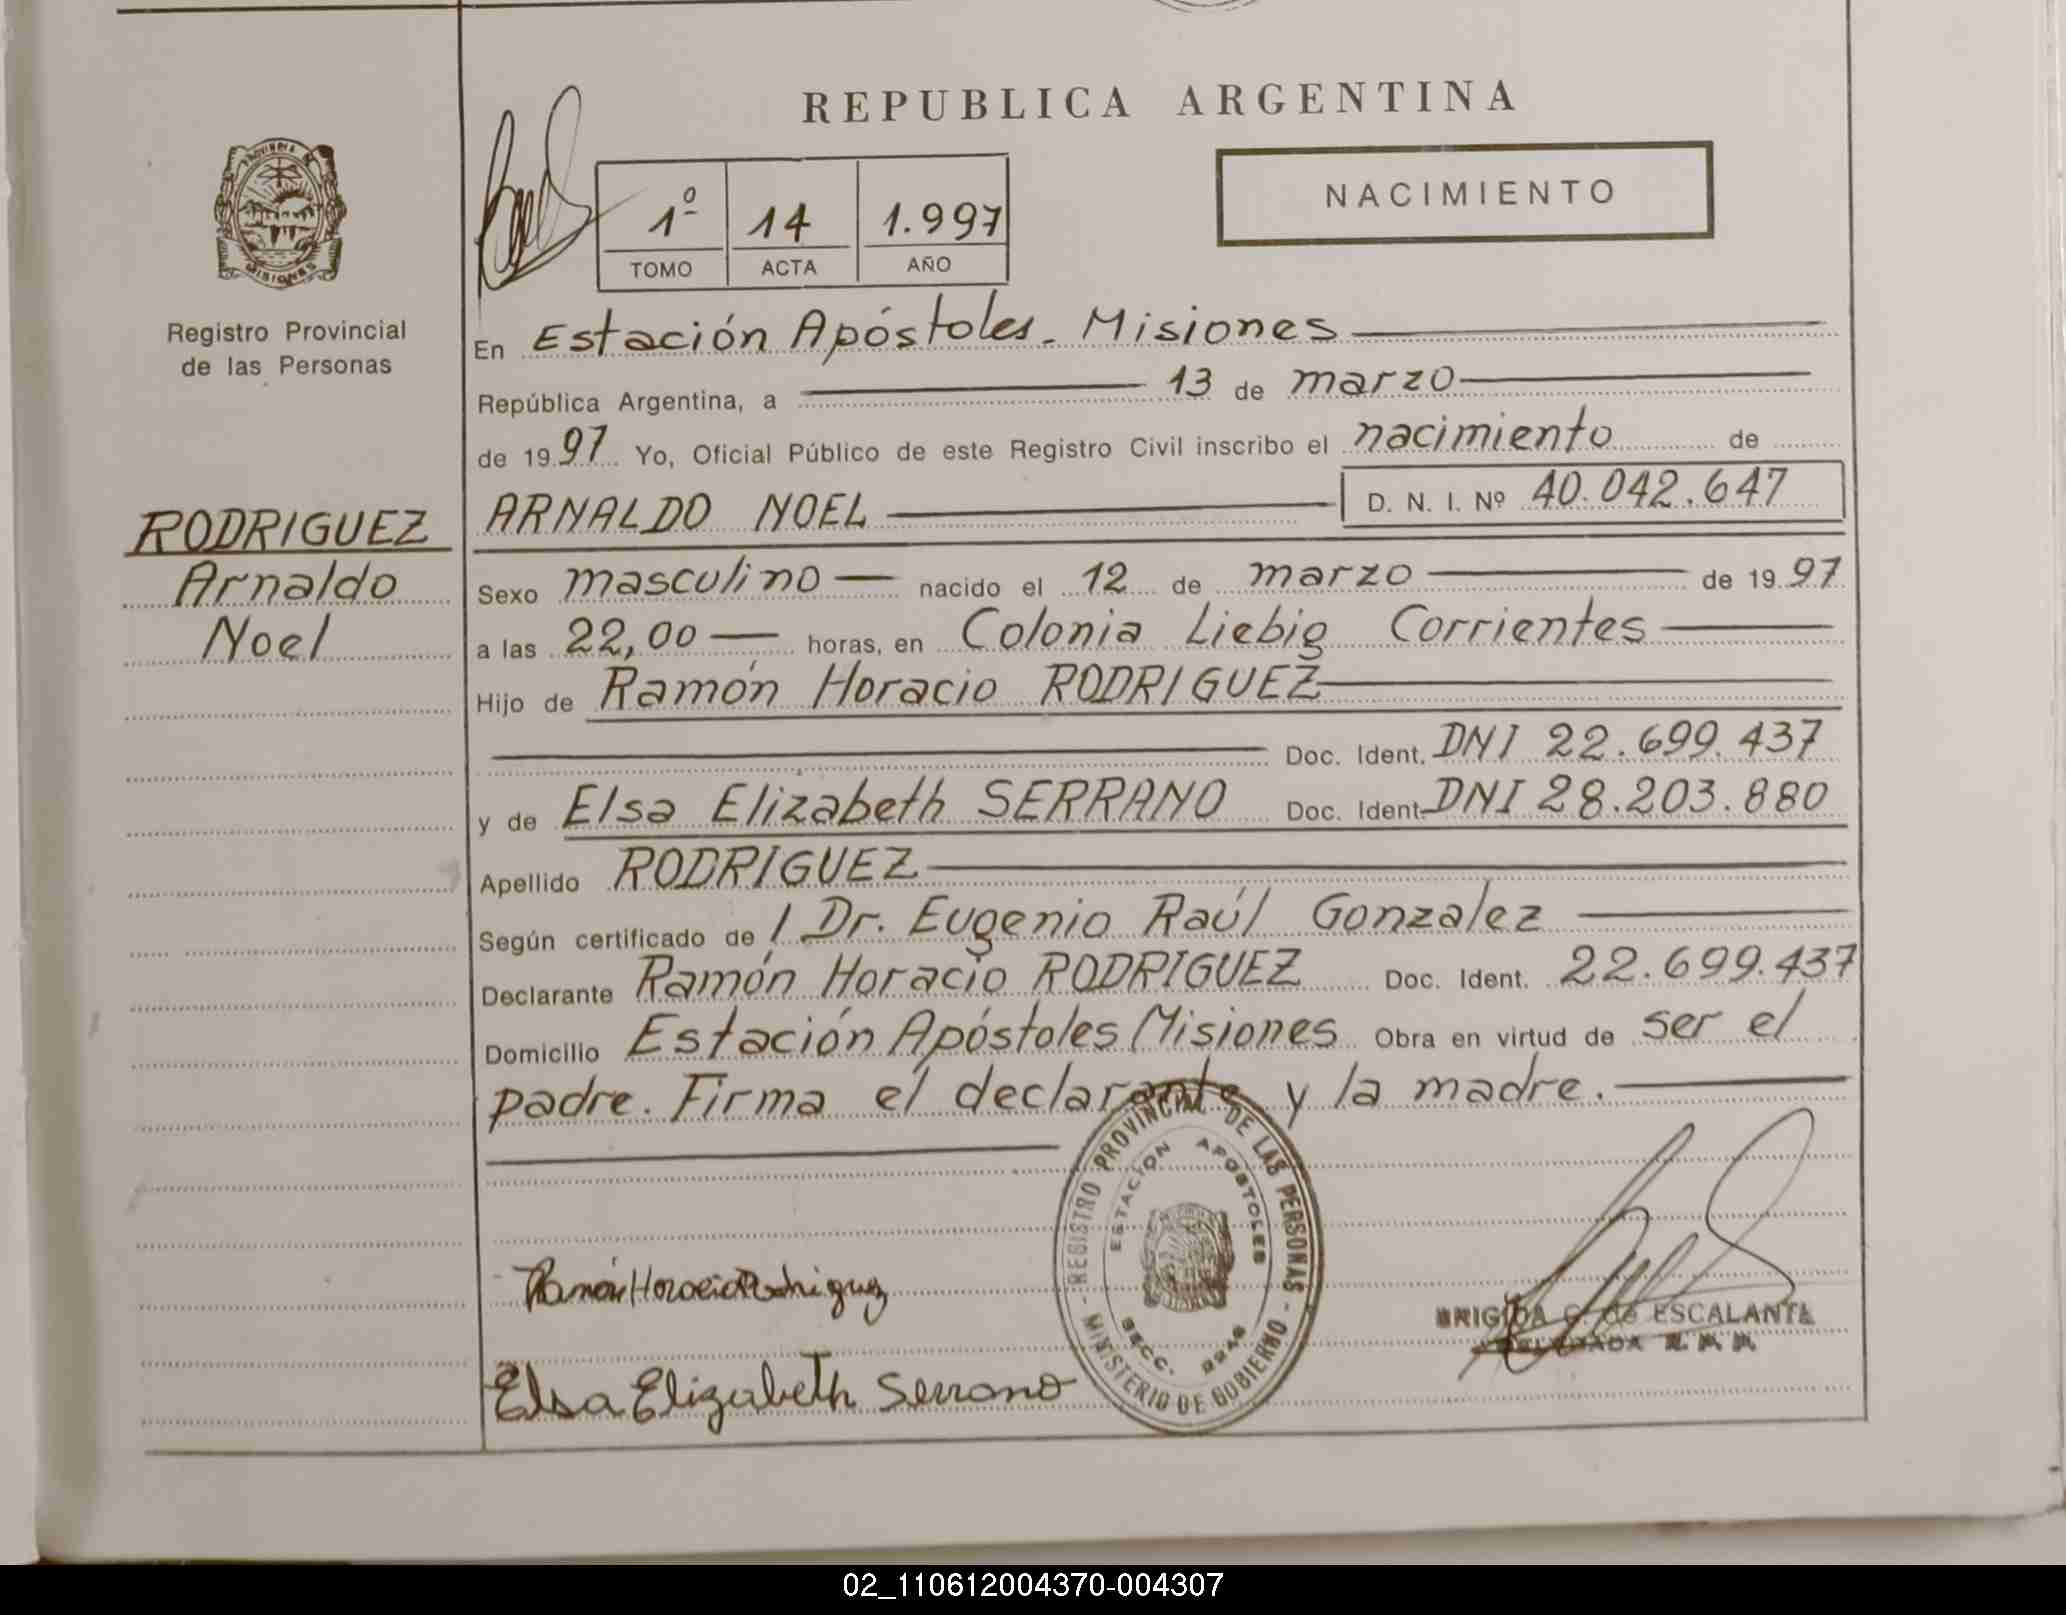 REPUBLICA ARGENTINA
PROVINCIA DE
MISIONES
Registro Provincial
de las Personas
1º 14 1.997
TOMO ACTA AÑO
NACIMIENTO
En Estación Apóstoles. Misiones
República Argentina, a 13 de marzo
de 1997 Yo, Oficial Público de este Registro Civil inscribo el nacimiento de
ARNALDO NOEL D. N. I. Nº 40.042.647
RODRIGUEZ
Arnaldo
Noel
Sexo masculino nacido el 12 de marzo de 1997
a las 22,00 horas, en Colonia Liebig Corrientes
Hijo de Ramón Horacio RODRIGUEZ
Doc. Ident. DNI 22.699.437
y de Elsa Elizabeth SERRANO Doc. Ident. DNI 28.203.880
Apellido RODRIGUEZ
Según certificado de / Dr. Eugenio Raúl Gonzalez
Declarante Ramón Horacio RODRIGUEZ Doc. Ident. 22.699.437
Domicilio Estación Apóstoles Misiones Obra en virtud de ser el
padre. Firma el declarante y la madre.
REGISTRO PROVINCIAL DE LAS PERSONAS
ESTACION APOSTOLES
SECC. 2246
MINISTERIO DE GOBIERNO
Ramón Horacio Rodriguez
Elsa Elizabeth Serrano
BRIGIDA G. de ESCALANTE
02_110612004370-004307